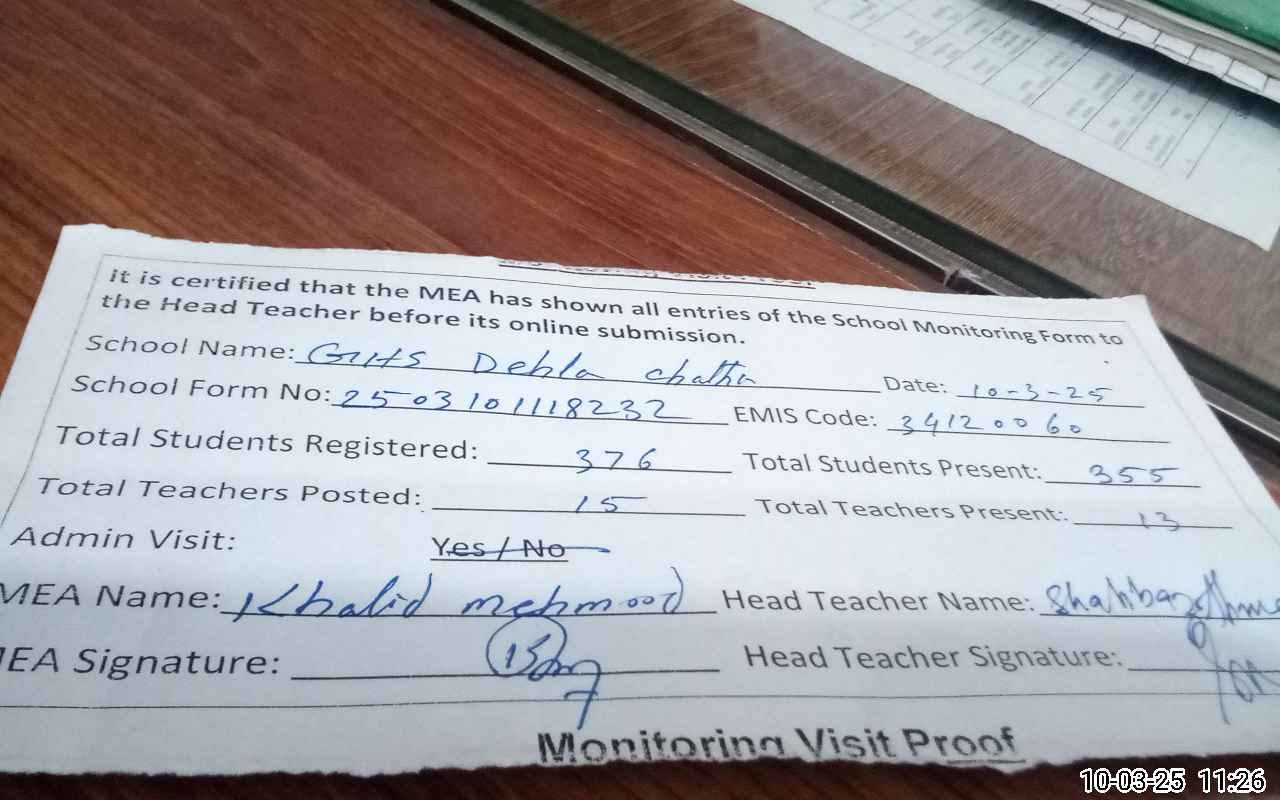 It is certified that the MEA has shown all entries of the School Monitoring Form to
the Head Teacher before its online submission.
School Name: GHS Debla chatha Date: 10-3-25
School Form No: 2503101118232 EMIS Code: 34120060
Total Students Registered: 376 Total Students Present: 355
Total Teachers Posted: 15 Total Teachers Present: 13
Admin Visit: Yes / No
MEA Name: Khalid mehmood Head Teacher Name: Shahbaz
MEA Signature: Head Teacher Signature:
Monitoring Visit Proof
10-03-25 11:26